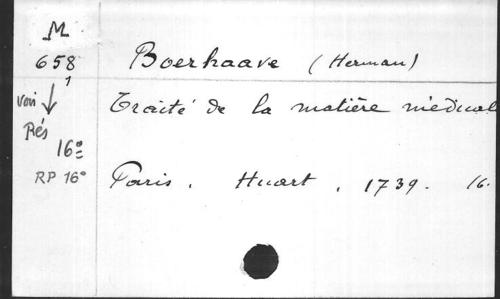 M
658 Boerhaave (Herman)
1
voir Traité de la matière médical
Rés
16º
RP 16º Paris. Huart, 1739. 16.